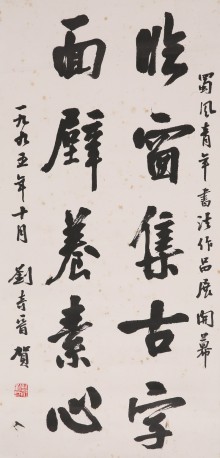 蜀風青年書法作品展開幕
臨窗集古字
面壁養素心
一九九五年十月 劉奇晉 賀